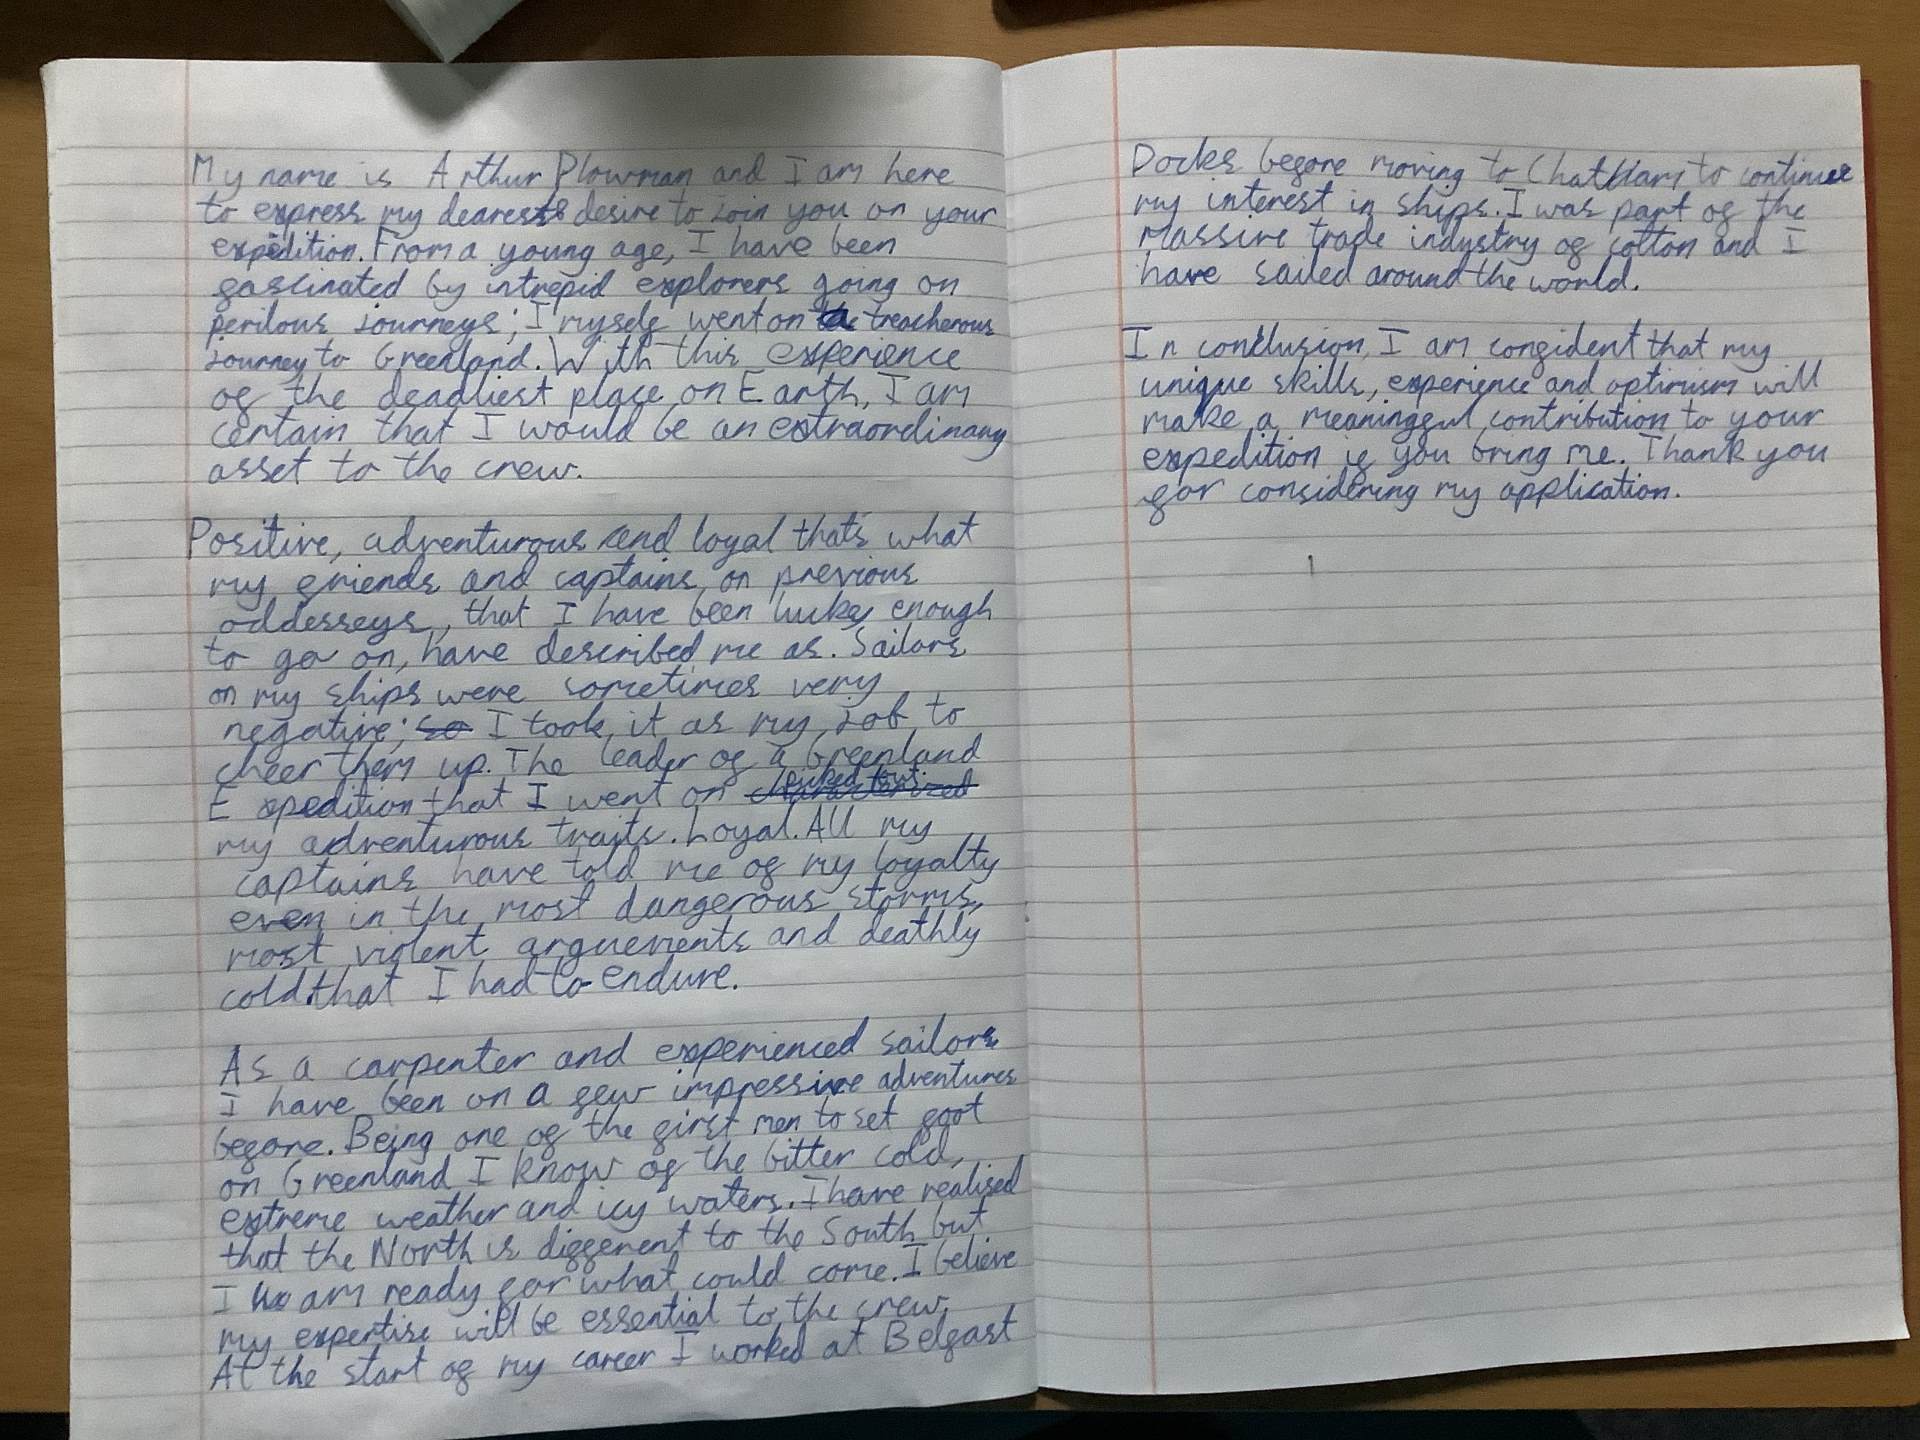 My name is Arthur Plowman and I am here
to express my dearest desire to join you on your
expedition. From a young age, I have been
fascinated by intrepid explorers going on
perilous journeys; I myself went on a treacherous
journey to Greenland. With this experience
of the deadliest place on Earth, I am
certain that I would be an extraordinary
asset to the crew.
Positive, adventurous and loyal that's what
my friends and captains on previous
oddesseys, that I have been lucky enough
to go on, have described me as. Sailors
on my ships were sometimes very
negative; so I took it as my job to
cheer them up. The leader of a Greenland
Expedition that I went on characterized picked out
my adventurous traits. Loyal. All my
captains have told me of my loyalty
even in the most dangerous storms,
most violent arguements and deathly
cold that I had to endure.
As a carpenter and experienced sailor
I have been on a few impressive adventures
before. Being one of the first men to set foot
on Greenland I know of the bitter cold,
extreme weather and icy waters. I have realised
that the North is different to the South but
I am ready for what could come. I believe
my expertise will be essential to the crew.
At the start of my career I worked at Belfast
Docks before moving to Chatham to continue
my interest in ships. I was part of the
massive trade industry of cotton and I
have sailed around the world.
In conclusion, I am confident that my
unique skills, experience and optimism will
make a meaningful contribution to your
expedition if you bring me. Thank you
for considering my application.